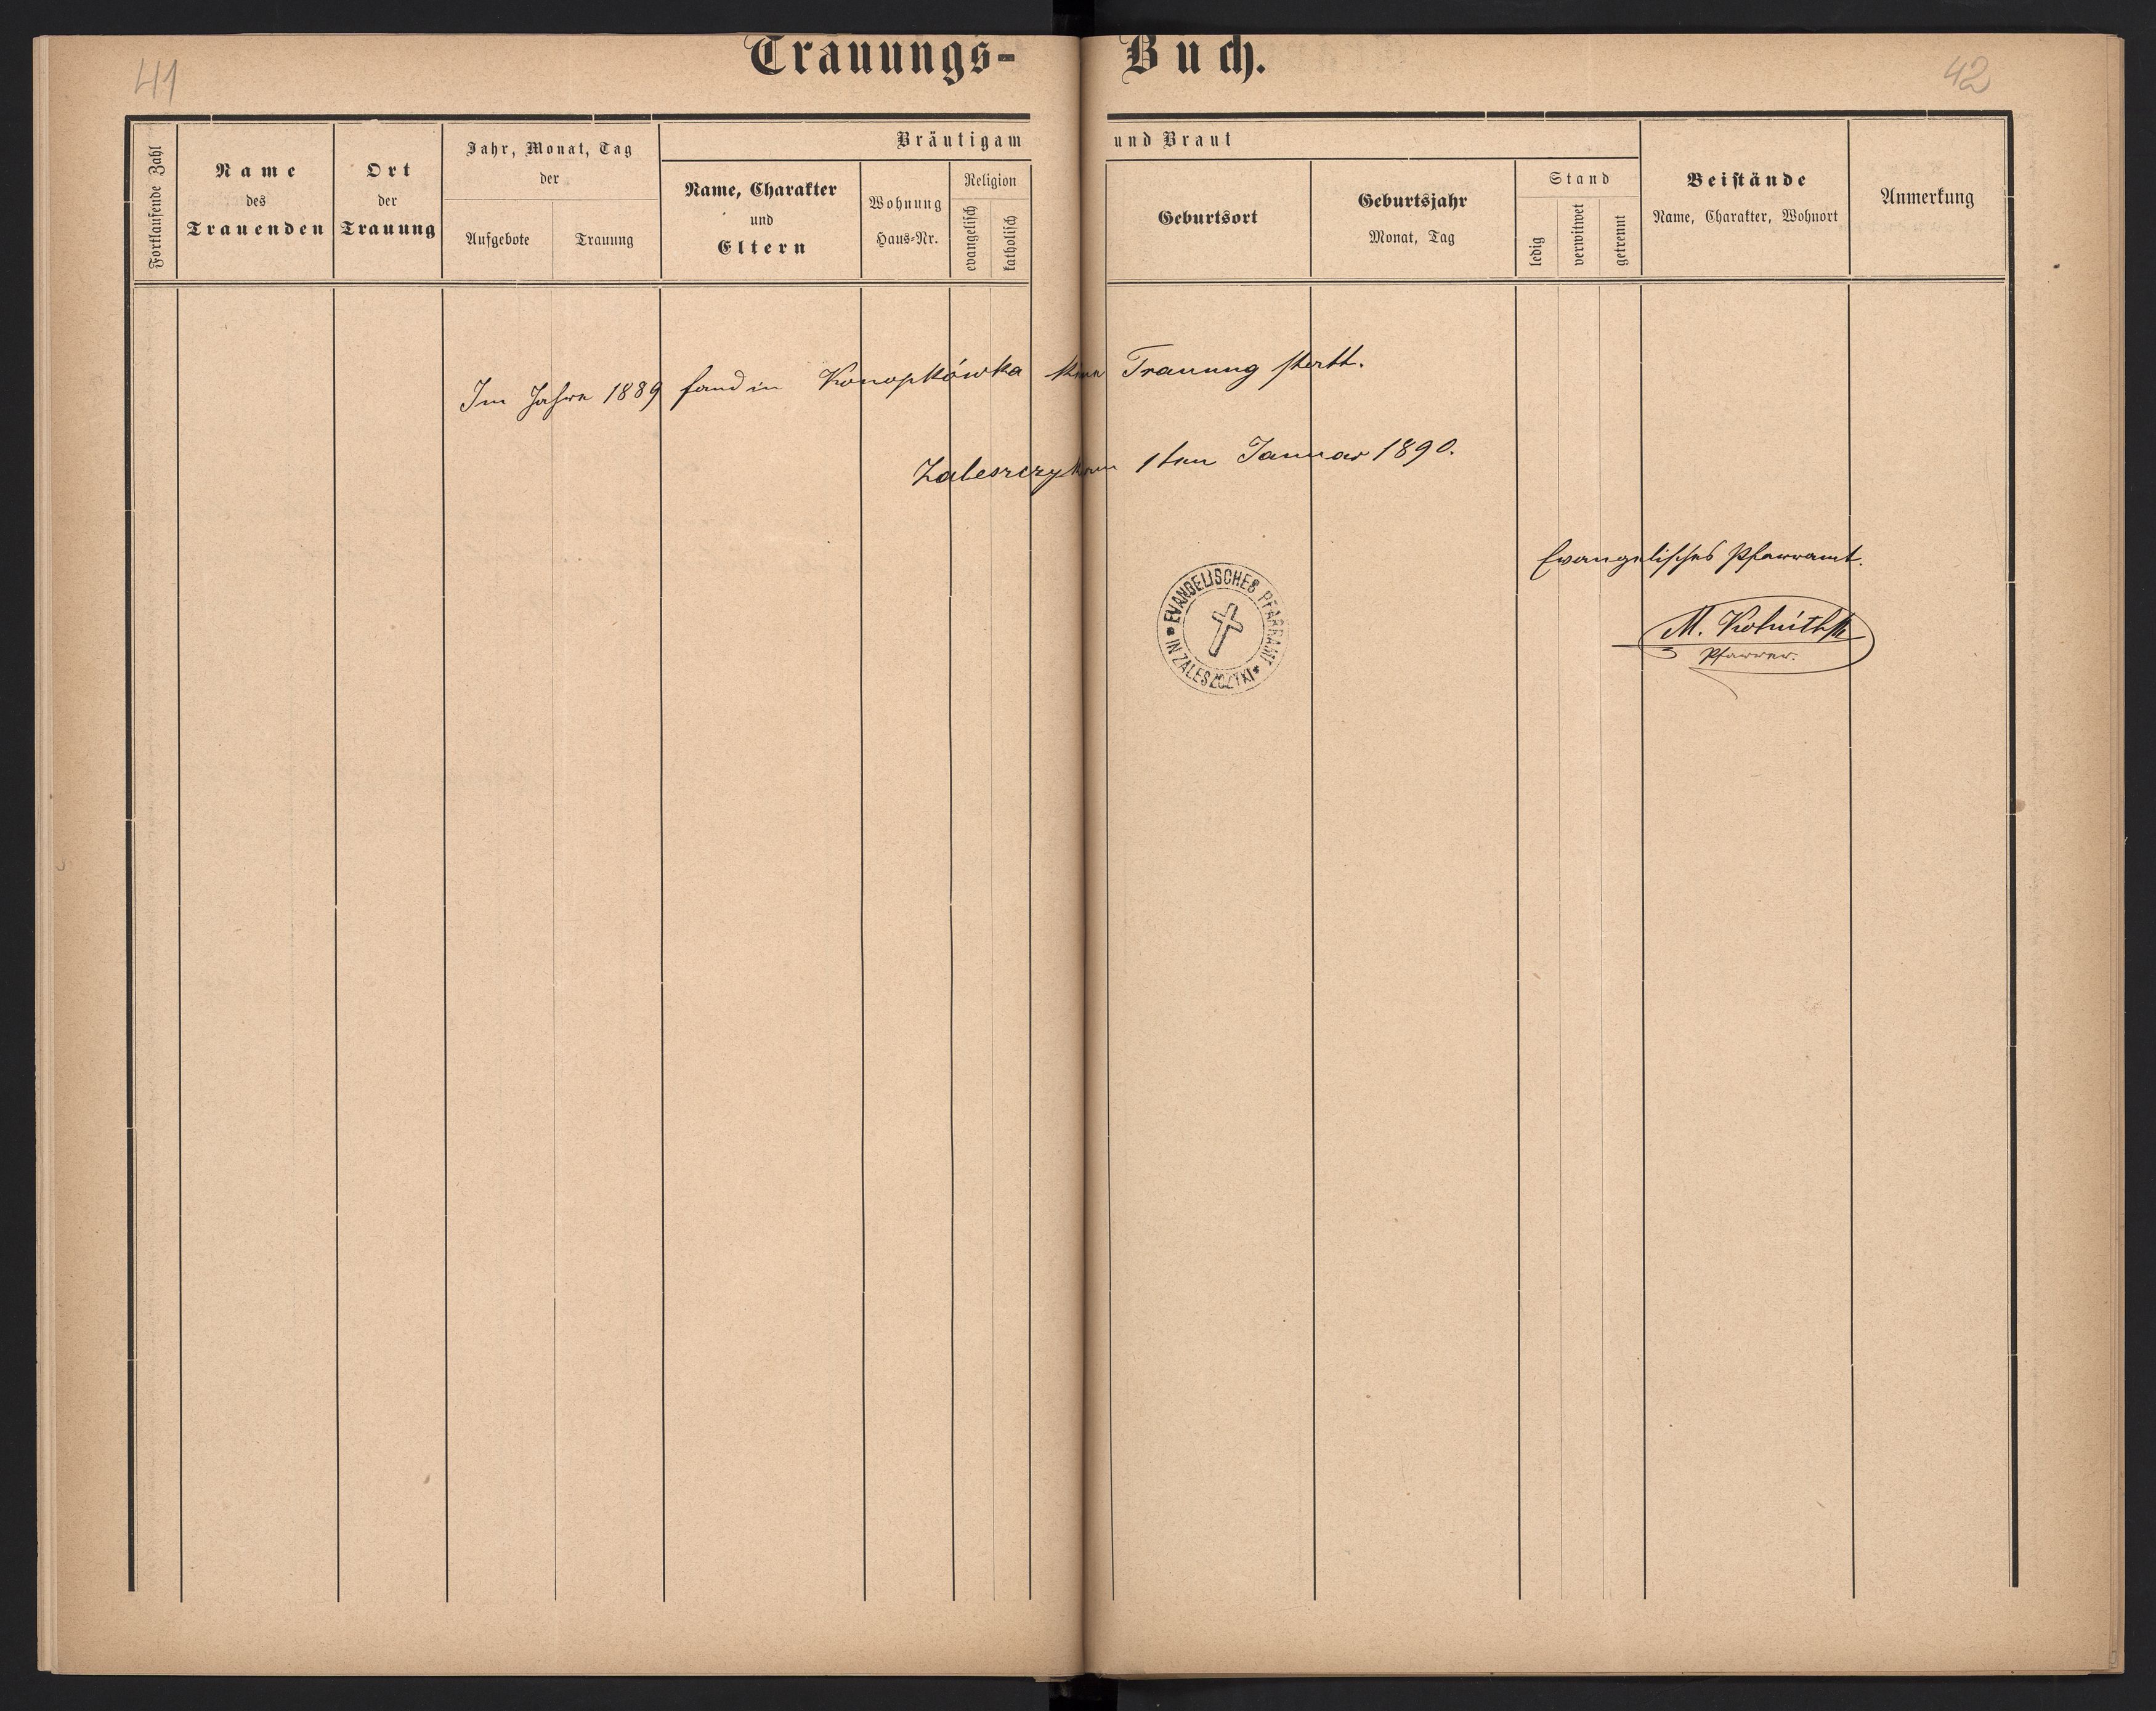 41
42
Trauungs-Buch.
Fortlaufende Zahl
Name
des
Trauenden
Ort
der
Trauung
Jahr, Monat, Tag
der
Aufgebote
Trauung
Bräutigam und Braut
Name, Charakter
und
Eltern
Wohnung
Haus-Nr.
Religion
evangelisch
katholisch
Geburtsort
Geburtsjahr
Monat, Tag
Stand
ledig
verwitwet
getrennt
Beistände
Name, Charakter, Wohnort
Anmerkung
Im Jahre 1889 fand in Konopkówka keine Trauung statt.
1ten Januar 1890.
Evangelisches Pfarramt.
EVANGELISCHES PFARRAMT
IN ZALESZCZYKI
M.
Pfarrer.